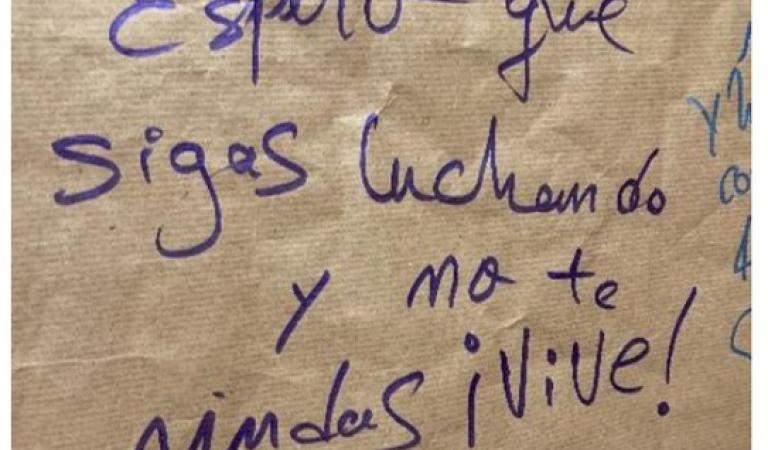 Espero que
sigas luchando
y no te
rindas ¡Vive!